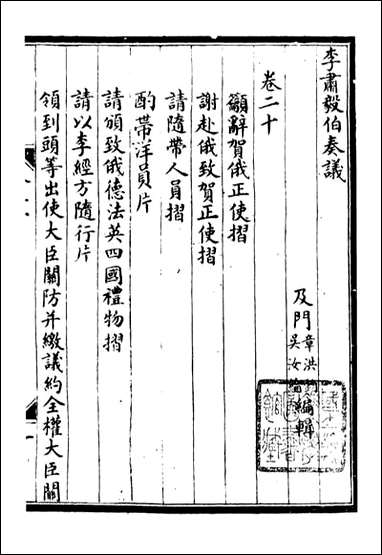 李肅毅伯奏議
卷二十
及門
章洪
吳汝
編輯
籲辭賀俄正使摺
謝赴俄致賀正使摺
請隨帶人員摺
酌帶洋員片
請頒致俄德法英四國禮物摺
請以李經方隨行片
領到頭等出使大臣關防并繳議約全權大臣關